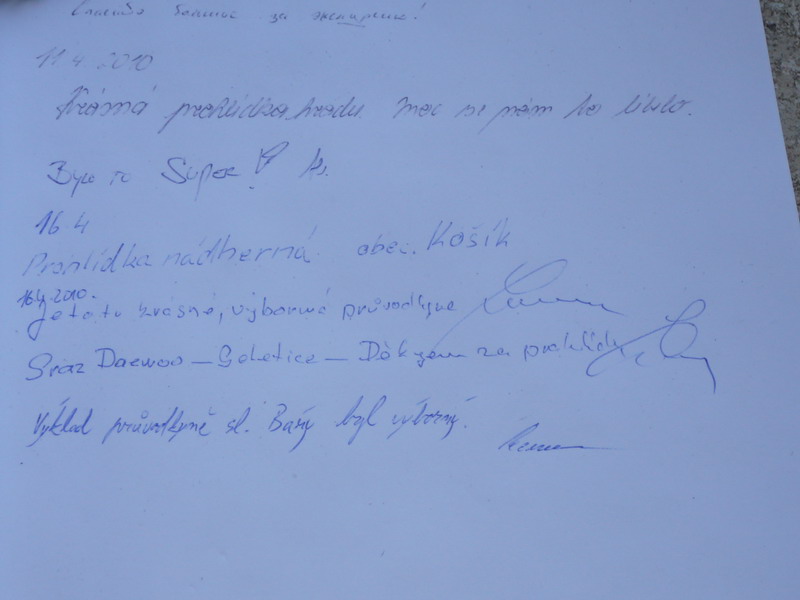 Спасибо большое за экскурсию!
11.4.2010
Krásná prohlídka hradu. Moc se nám to líbilo.
Bylo to Super!
16.4
Prohlídka nádherná. obec. Košík
16.4.2010.
Je to tu krásné, výborná průvodkyně
Sraz Daewoo – Seletice – Děkujem za prohlídku
Výklad průvodkyně sl. Báry byl výborný.